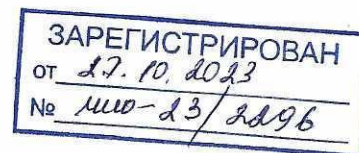 ЗАРЕГИСТРИРОВАН
от 27.10.2023
№ мио-23/2296